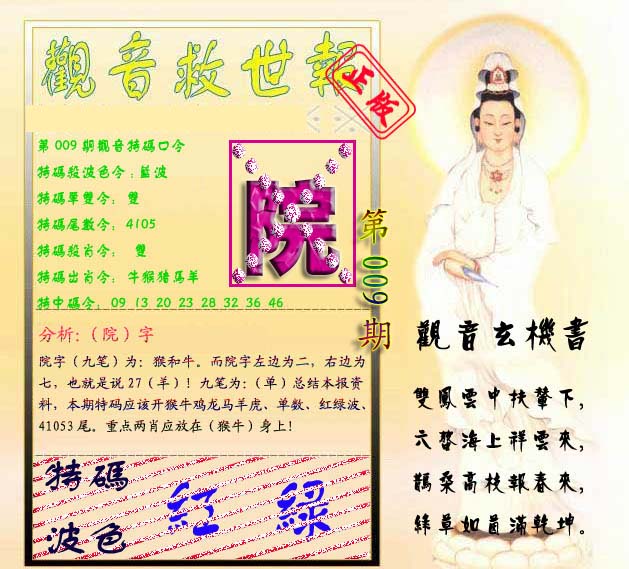 觀音救世報
正版
第009期觀音特碼口令
特碼殺波色令:藍波
特碼單雙令: 雙
特碼尾數令: 4105
特碼殺肖令: 雙
特碼出肖令: 牛猴猪馬羊
特中碼令: 09 13 20 23 28 32 36 46
院
第009期
分析:(院)字
院字(九笔)为:猴和牛。而院字左边为二,右边为
七,也就是说27(羊)!九笔为:(单)总结本报资
料,本期特码应该开猴牛鸡龙马羊虎、单数、红绿波、
41053尾。重点两肖应放在(猴牛)身上!
特碼
波色
紅 綠
觀音玄機書
雙鳳雲中扶輦下,
六鰲海上祥雲來,
鵲桑高枝報春來,
綠草如茵滿乾坤。